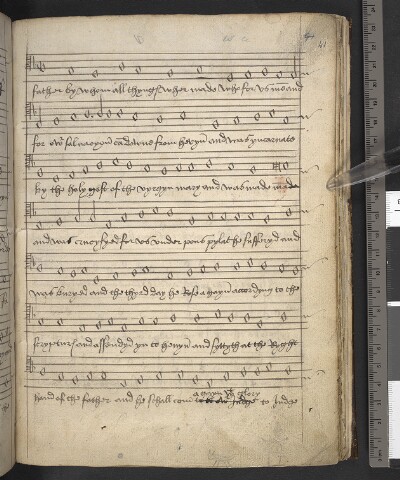 41
father by whom all thyngs wher made who for us men and
for our salvacyon cam downe from hevyn and was yncarnate
by the holy gost of the vyrgyn mary and was made man
and was crucyfyed for us under pons pylat he sufferyd and
was buryed and the thyrd day he Rose agayn accordyng to the
scryptures and assendyd yn to hevyn and syttyth at the Ryght
agayn wt glory
hand of the father and he schall com to Judge